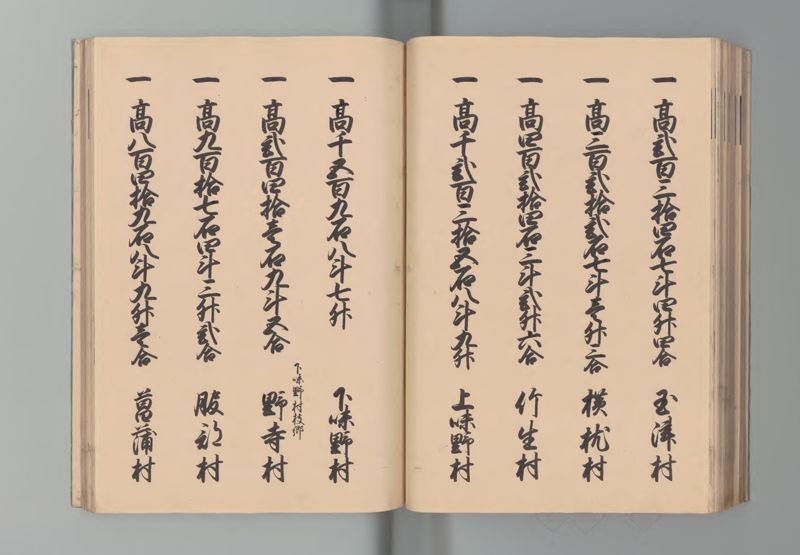 一 高弐百三拾四石七斗四升四合 玉津村
一 高三百弐拾弐石七斗壱升三合 横枕村
一 高四百弐拾四石三斗弐升六合 竹生村
一 高千弐百三拾五石八斗九升 上味野村
一 高千五百九石八斗七升 下味野村
下味野村枝郷
一 高弐百四拾壱石九斗五合 野寺村
一 高九百拾七石四斗三升弐合 服部村
一 高八百四拾九石八斗九升壱合 菖蒲村